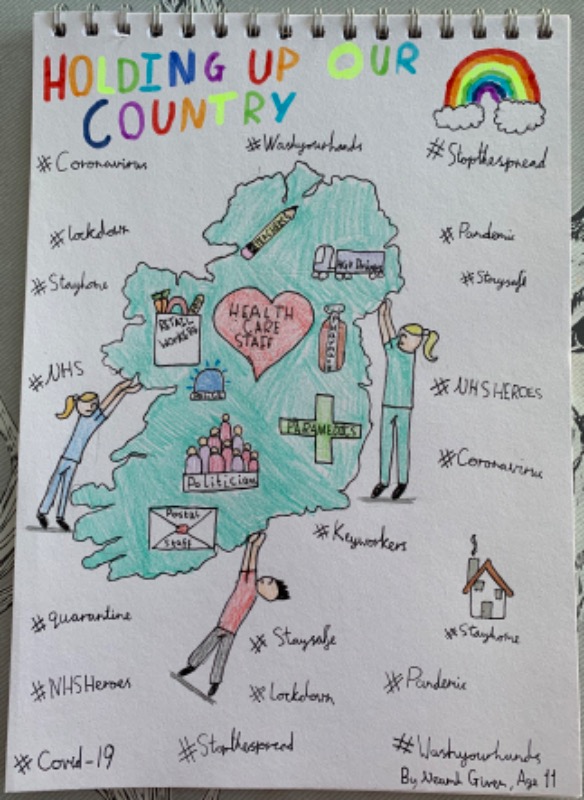 HOLDING UP OUR
COUNTRY
#Washyourhands
#Coronavirus
#Stopthespread
#lockdown
#Pandemic
#Stayhome
#Staysafe
TEACHERS
HGV Drivers
RETAIL
WORKERS
HEALTH
CARE
STAFF
POLICE
#NHS
#NHSHEROES
PARAMEDICS
Politicians
#Coronavirus
Postal
Staff
#Keyworkers
#quarantine
#Staysafe
#Stayhome
#NHSHeroes
#Lockdown
#Pandemic
#Covid-19
#Stopthespread
#Washyourhands
By Given, Age 11